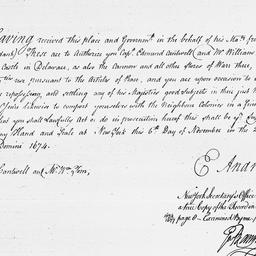 Having received this place and Governmt. in the behalf of his Maty. fr
These are to Authorize you Capt. Edmund Cantwell and Mr. William
Castle in Delaware, as also the Cannon and all other Stores of Warr there,
pursuant to the Articles of Peace, and you are upon occasion to
repossessing and settling any of his Majesties good subjects in their just
likewise to comport yourselves with the Neighbour Colonies in a frien
you shall Lawfully Act or do in prosecution hereof this shall be
Island and Seale at New York this 6th Day of November in the 2
Domini 1674.
E Andr
Cantwell and Mr. Wm. Tom,
New York Secretary's Office
a true Copy of the Record
page 6